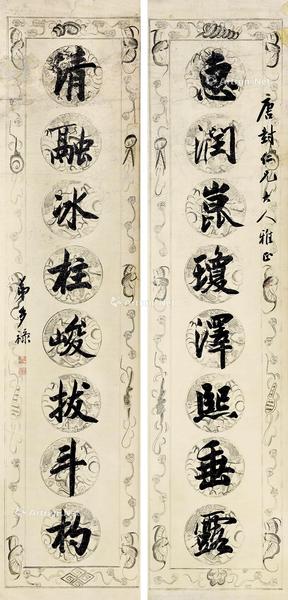 唐封仁兄大人雅正
惠潤崑瓊澤熙垂露
清融冰柱峻拔斗杓
弟多祿